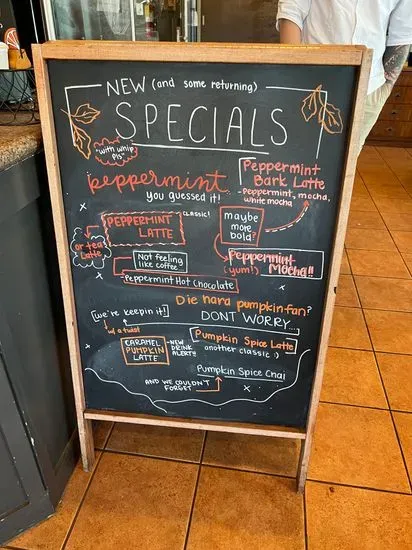 NEW (and some returning)
SPECIALS
"with whip
pls"
peppermint
you guessed it!
PEPPERMINT
BARK LATTE
-Peppermint, mocha,
white mocha
CLASSIC!
PEPPERMINT
LATTE
or tea
Latte
maybe
more
bold?
Not feeling
like coffee
Peppermint
Mocha!!
(yum!)
-Peppermint Hot Chocolate
Die hard pumpkin-fan?
DONT WORRY...
[we're keepin it!]
w/a twist
CARAMEL
PUMPKIN
LATTE
-NEW
DRINK
ALERT!!
Pumpkin Spice Latte
another classic :)
Pumpkin Spice Chai
AND WE COULDN'T
FORGET